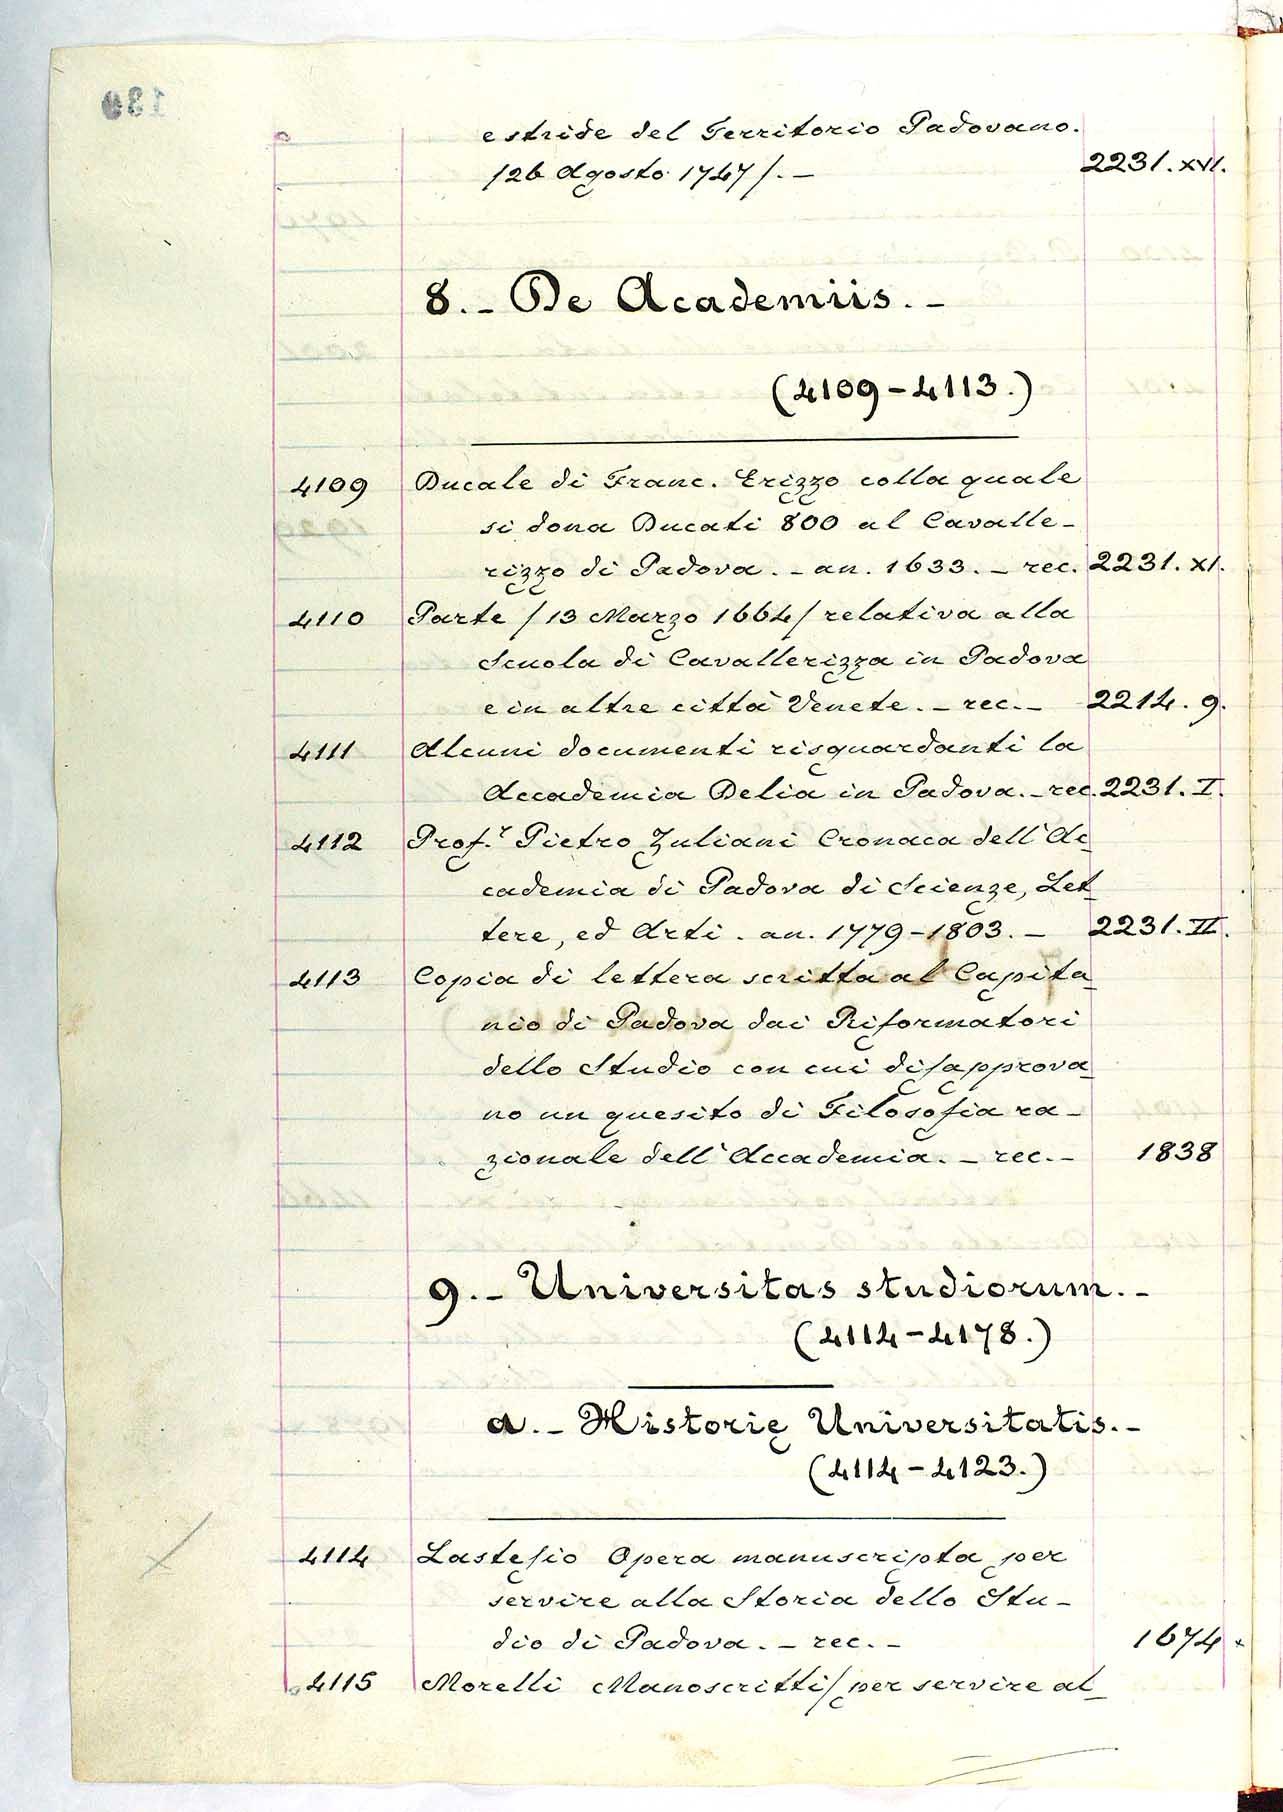 e stride del Territorio Padovano.
/26 Agosto 1747/. — 2231. XVI.
8. – De Academiis. –
(4109 – 4113.)
4109 Ducale di Franc. Erizzo colla quale
si dona Ducati 800 al Cavalle-
rizzo di Padova. – an. 1633. – rec. 2231. XI.
4110 Parte /13 Marzo 1664/ relativa alla
Scuola di Cavallerizza in Padova
e in altre città Venete. – rec. – 2214. 9.
4111 Alcuni documenti risguardanti la
Accademia Delia in Padova. – rec. 2231. I.
4112 Prof.r Pietro Zuliani Cronaca dell'Ac-
cademia di Padova di Scienze, Let-
tere, ed Arti. an. 1779–1803. – 2231. II.
4113 Copia di lettera scritta al Capita-
nio di Padova dai Riformatori
dello Studio con cui disapprova-
no un quesito di Filosofia ra-
zionale dell'Accademia. – rec. – 1838
9. – Universitas studiorum. –
(4114 – 4178.)
a. – Historię Universitatis. –
(4114 – 4123.)
4114 Lastesio Opera manuscripta per
servire alla Storia dello Stu-
dio di Padova. – rec. – 1674 x
4115 Morelli Manoscritti/ per servire al-